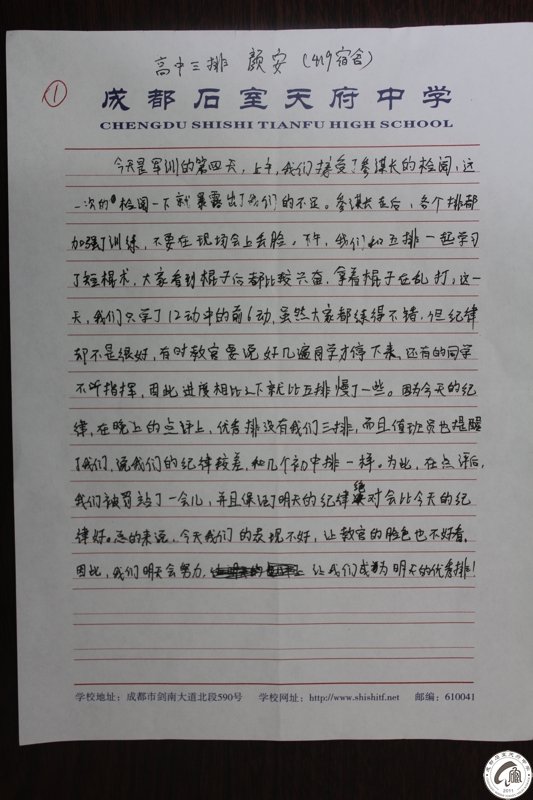 高中三排 颜安 (419宿舍)
1
成都石室天府中学
CHENGDU SHISHI TIANFU HIGH SCHOOL
今天是军训的第四天，上午，我们接受了参谋长的检阅，这
一次的检阅一下就暴露出了我们的不足。参谋长走后，各个排都
加强了训练，不要在现场会上丢脸，下午，我们和五排一起学习
了短棍术，大家看到棍子后都比较兴奋，拿着棍子在乱打，这一
天，我们只学了12动中的前6动，虽然大家都练得不错，但纪律
却不是很好，有时教官要说好几遍同学才停下来，还有的同学
不听指挥，因此进度相比之下就比五排慢了一些。因为今天的纪
律，在晚上的点评上，优秀排没有我们三排，而且值班员也提醒
了我们，说我们的纪律较差，和几个初中排一样。为此，在点评后，
我们被罚站了一会儿，并且保证了明天的纪律绝对会比今天的纪
律好。总的来说，今天我们的表现不好，让教官的脸色也不好看。
因此，我们明天会努力，让我们成为明天的优秀排！
学校地址：成都市剑南大道北段590号 学校网址：http://www.shishitf.net 邮编：610041
2011